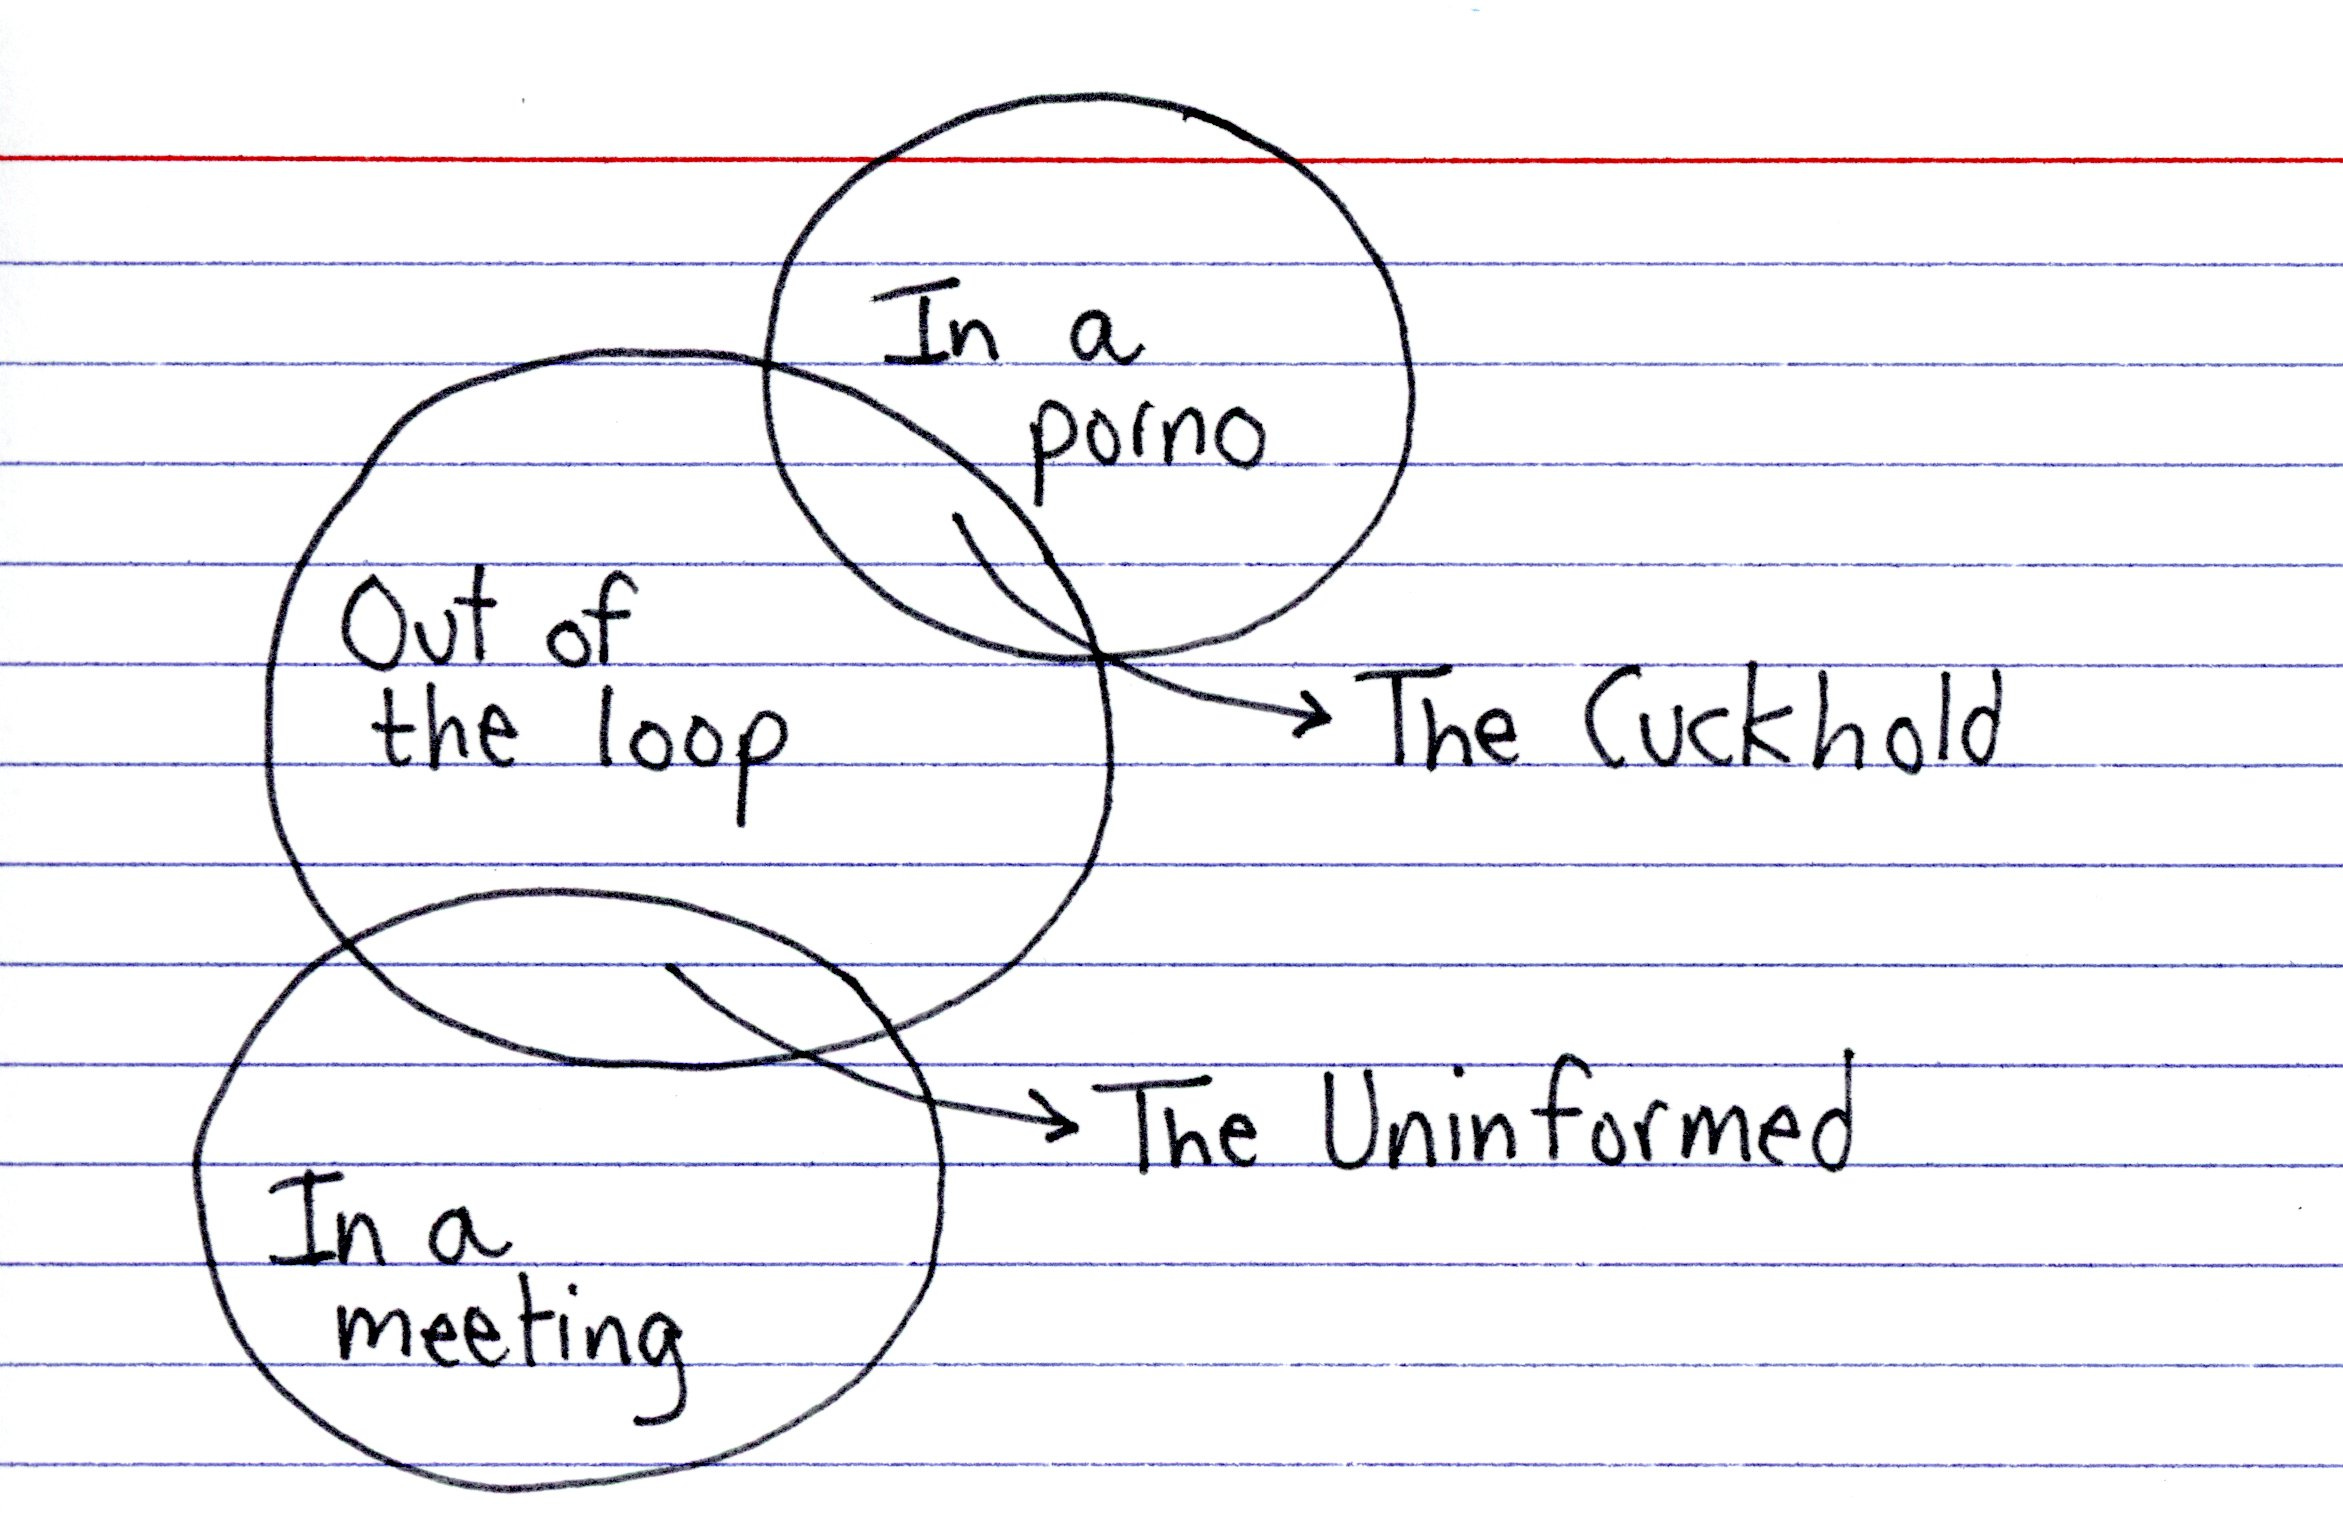 In a
porno
Out of
the loop
The Cuckhold
The Uninformed
In a
meeting